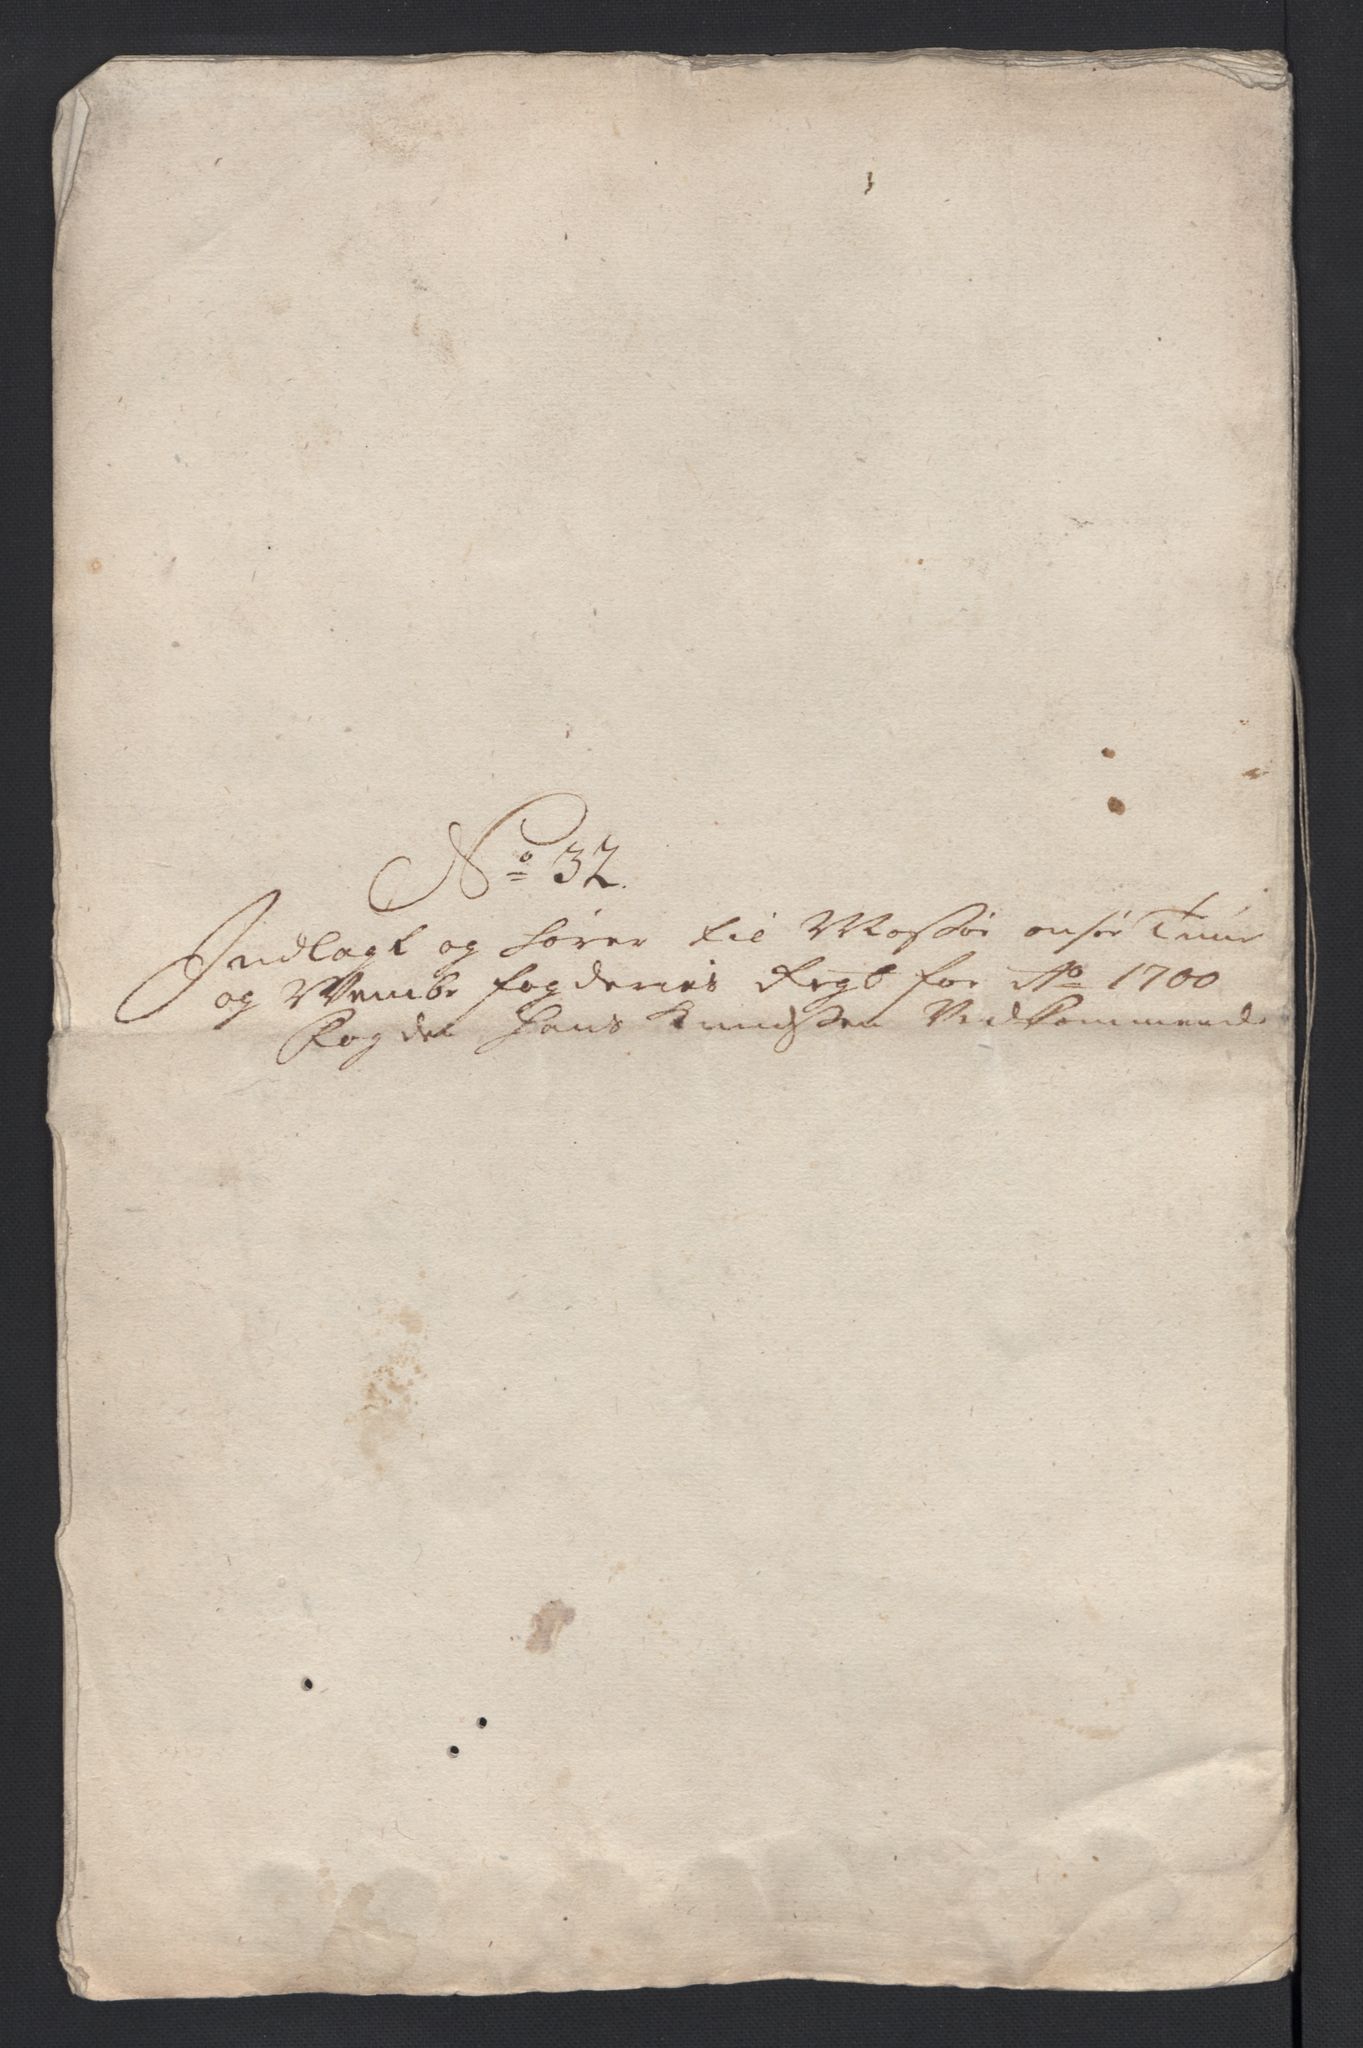 No 32.
Indlagt og hører til Mossøe onsøe Tune
og Wembe fogderies Regb for Ao 1700
Fogden Hans Knudssen Vedkommende